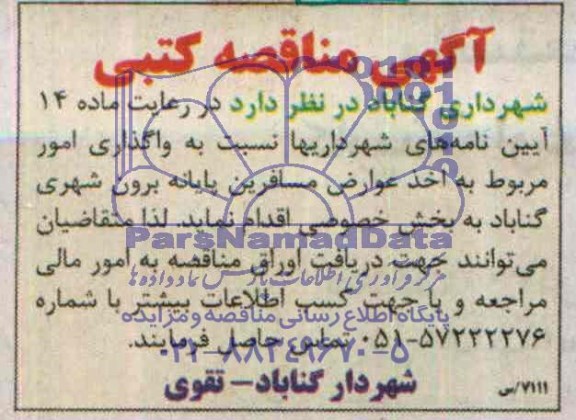 آگهی مناقصه کتبی
شهرداری گناباد در نظر دارد در رعایت ماده ۱۴
آیین نامه‌های شهرداریها نسبت به واگذاری امور
مربوط به اخذ عوارض مسافرین پایانه برون شهری
گناباد به بخش خصوصی اقدام نماید. لذا متقاضیان
ParsNamadData
می‌توانند جهت دریافت اوراق مناقصه به امور مالی
مرکز فرآوری اطلاعات پارس نماد داده ها
مراجعه و یا جهت کسب اطلاعات بیشتر با شماره
پایگاه اطلاع رسانی مناقصه و مزایده
۰۵۱-۵۷۲۲۲۲۷۶ تماس حاصل فرمایند.
۰۲۱-۸۸۳۴۹۶۷۰-۵
شهردار گناباد - تقوی
۷۱۱۱/س